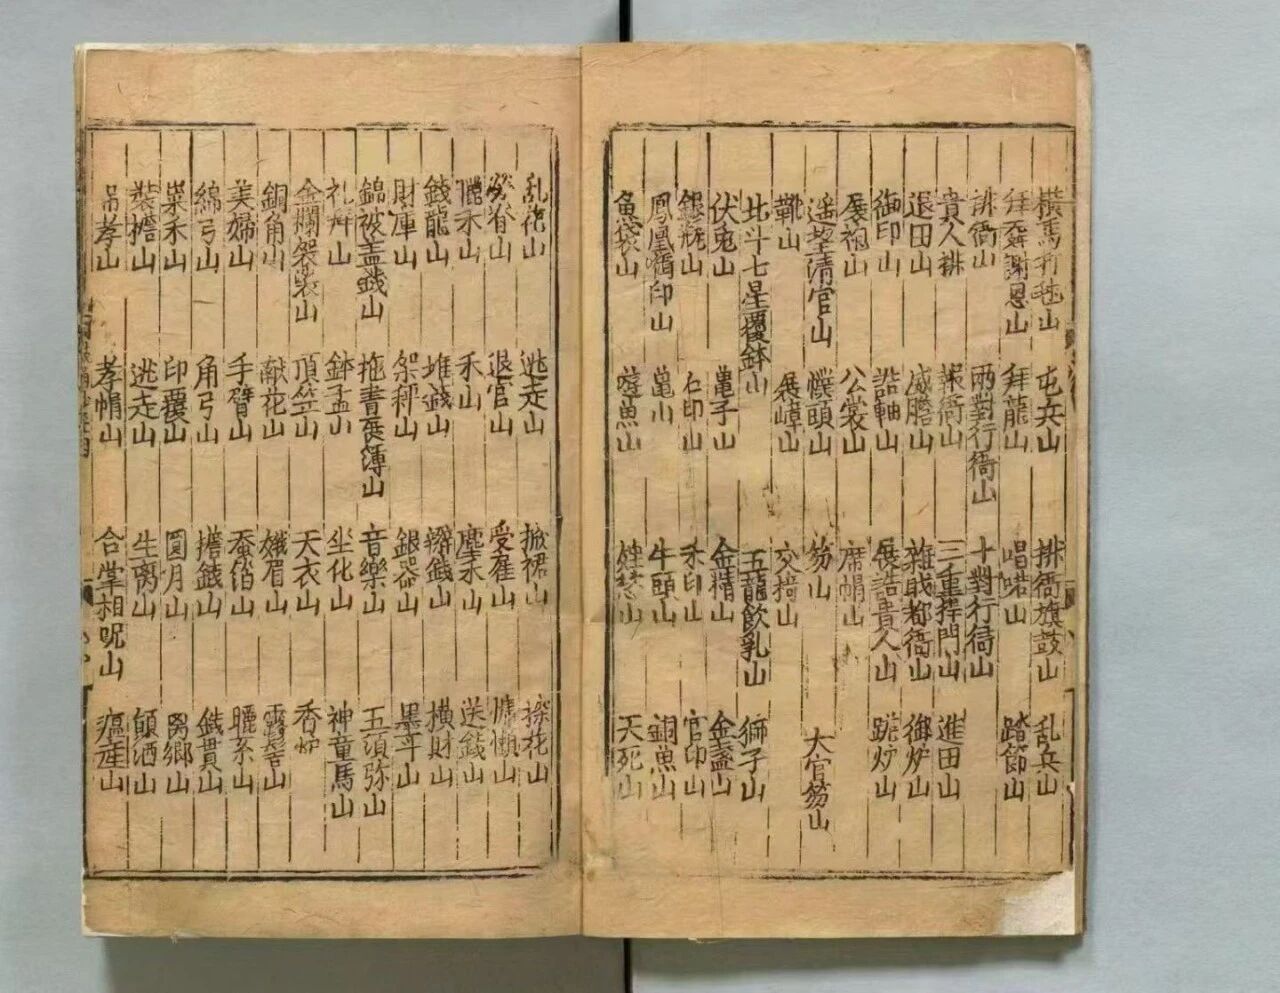 橫馬打毬山 屯兵山 排衙旗鼓山 乱兵山
拜舞謝恩山 拜龍山 唱喏山 踏節山
排衙山 兩對行衙山 十對行衙山
貴人排 報衙山 三重捍門山 進田山
退田山 減膽山 雜戝都衙山 御炉山
御印山 誥軸山 展誥貴人山 跳炉山
展袍山 公裳山 席帽山
遥望清官山 幞頭山 笏山 大官笏山
靴山 展㠅山 交掎山
北斗七星覆鉢山 五龍飲乳山 獅子山
伏兔山 亀子山 金精山 金盞山
銀瓶山 石印山 禾印山 官印山
鳳凰啣印山 亀山 牛頭山 銅魚山
魚袋山 遊魚山 山 天死山
乱花山 逃走山 掀裙山 探花山
山 退官山 受雇山 慵懶山
山 禾山 塵禾山 送錢山
錢龍山 堆錢山 山 橫財山
財庫山 架秤山 銀器山 墨斗山
錦被盖錢山 拖書展簿山 音樂山 五湏弥山
山 鉢盂山 坐化山 神童馬山
金襴袈裟山 頂笠山 天衣山 香炉
銅角山 献花山 娥眉山 露髻山
美婦山 手臂山 蚕山 山
綿弓山 角弓山 擔錢山 錢貫山
粜禾山 印覆山 圓月山 离鄉山
裝擔山 逃走山 生离山 顛酒山
吊孝山 孝帽山 合掌相呪山 瘟瘴山